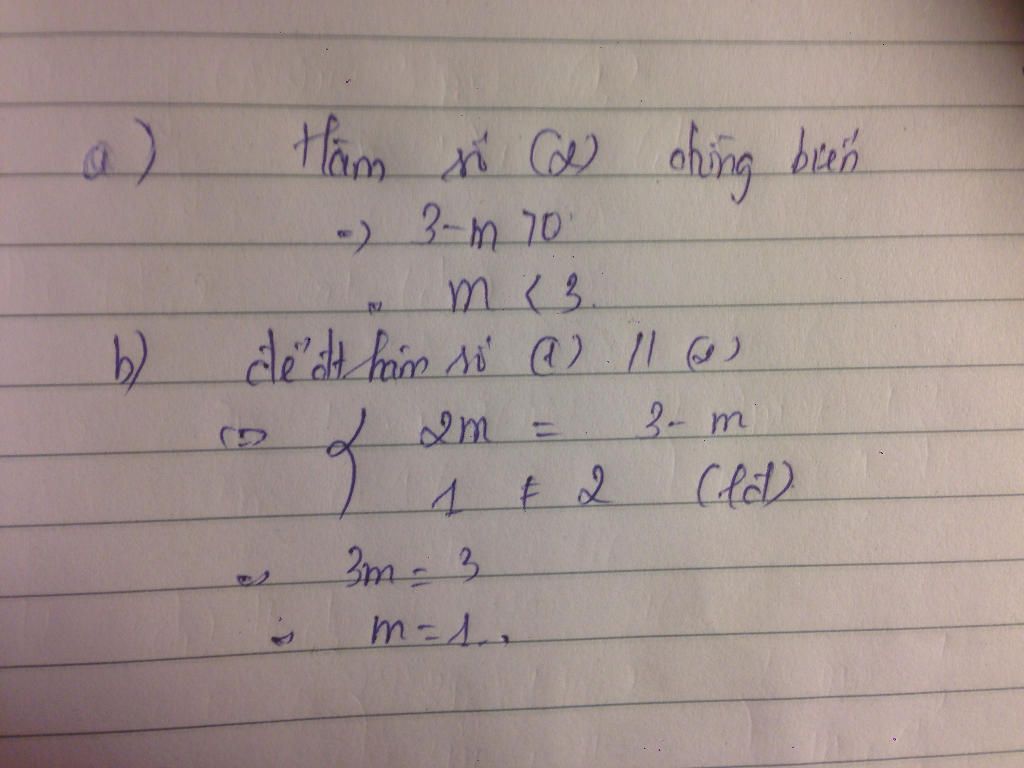 a) Hàm số (2) đồng biến
=> 3-m >0
=> m < 3.
b) để đt hàm số (1) // (2)
<=> { 2m = 3- m
1 ≠ 2 (lđ)
=> 3m = 3
=> m = 1.